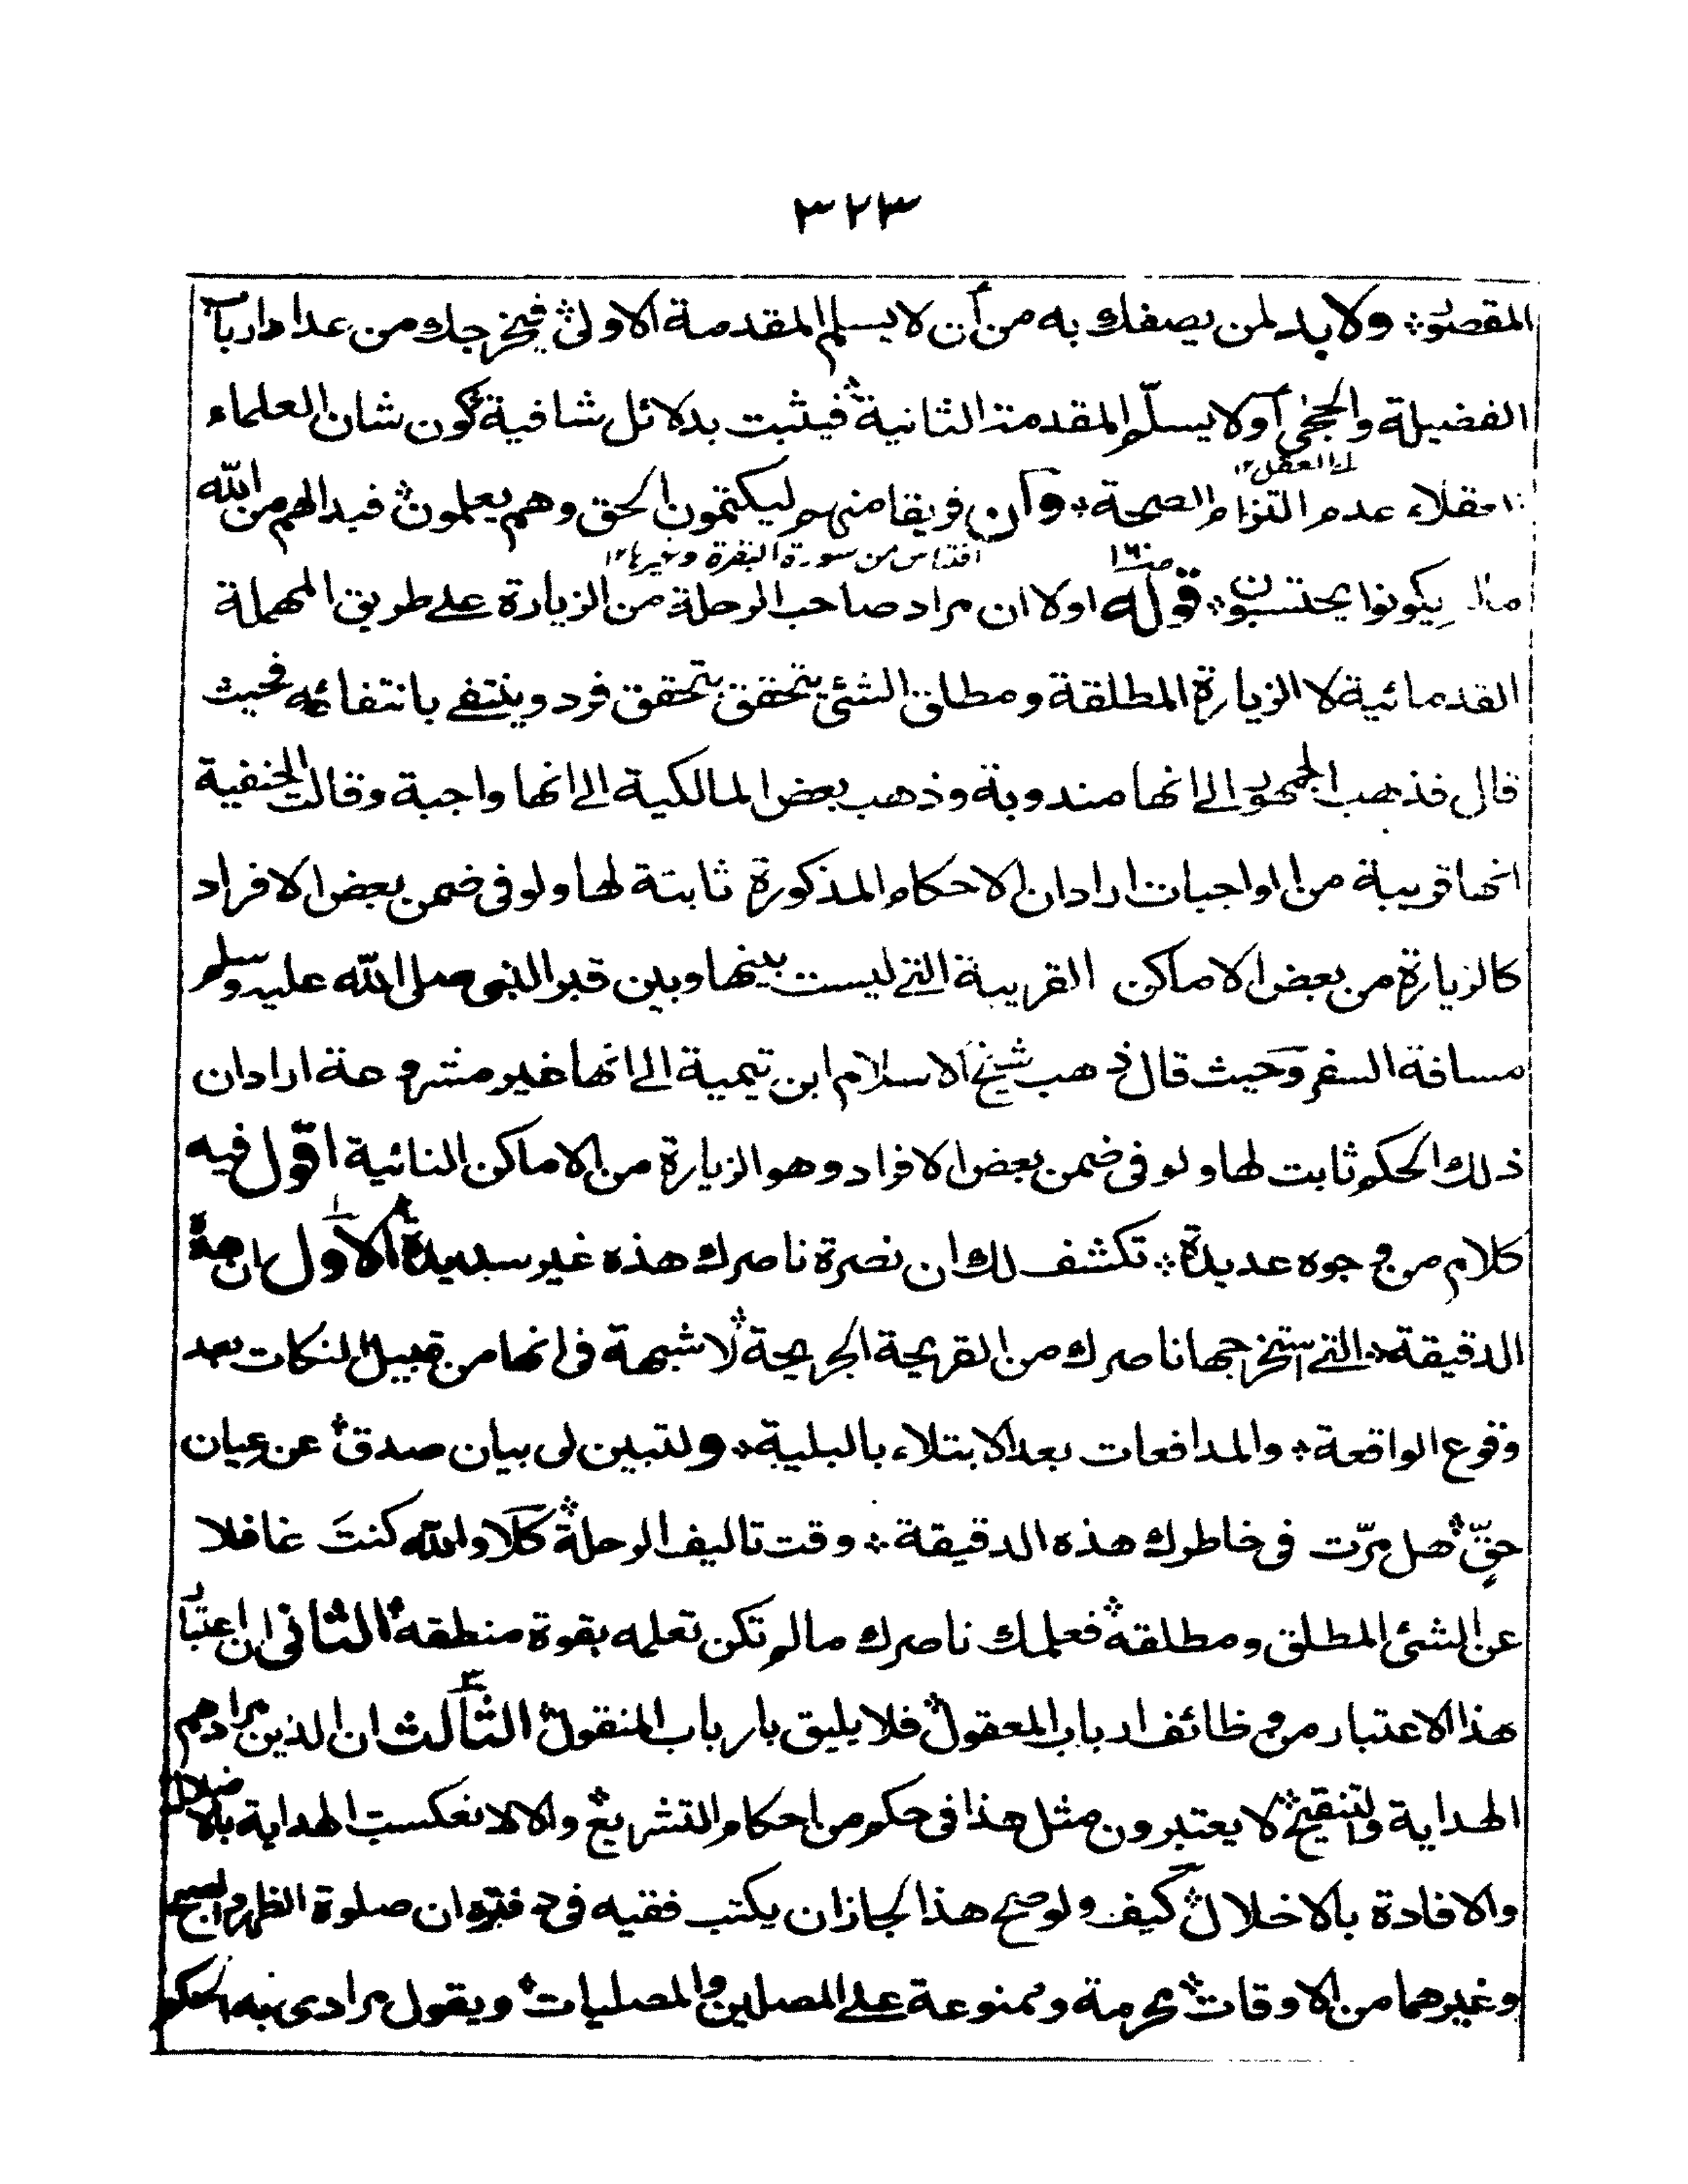 ٣٢٣
المقصود ولا بد لمن يصفك به من أن لا يسلم المقدمة الاولى فيخرجك من عداد ارباب
الفضيلة والحجى أو لا يسلّم المقدمة الثانية فيثبت بدلائل شافية كون شان العلماء
اى العقل ١٢
العقلاء عدم التزام الصحة وأن فريقا منهم ليكتمون الحق وهم يعلمون فبدا لهم من الله
اقتباس من سورة البقرة وغيرها ١٢
ما لم يكونوا يحتسبون قوله اولا ان مراد صاحب الرحلة من الزيارة على طريق المهملة
القدمائية لا الزيارة المطلقة ومطلق الشئ يتحقق بتحقق فرد وينتفى بانتفائه فحيث
قال فذهب الجمهور الى انها مندوبة وذهب بعض المالكية الى انها واجبة وقالت الحنفية
انها قريبة من الواجبات اراد ان الاحكام المذكورة ثابتة لها ولو فى ضمن بعض الافراد
كالزيارة من بعض الاماكن القريبة التى ليست بينها وبين قبر النبى صلى الله عليه وسلم
مسافة السفر وحيث قال ذهب شيخ الاسلام ابن تيمية الى انها غير مشروعة اراد ان
ذلك الحكم ثابت لها ولو فى ضمن بعض الافراد وهو الزيارة من الاماكن النائية اقول فيه
كلام من وجوه عديدة تكشف لك ان نصرة ناصرك هذه غير سديدة الاول ان هذه
الدقيقة التى استخرجها ناصرك من القريحة الجريحة لا شبهة فى انها من قبيل النكات بعد
وقوع الواقعة والمدافعات بعد الابتلاء بالبلية ولتبين لى بيان صدق عن عيان
حقّ هل مرّت فى خاطرك هذه الدقيقة وقت تاليف الرحلة كلا والله كنتَ غافلا
عن الشئ المطلق ومطلقه فعلمك ناصرك ما لم تكن تعلمه بقوة منطقه الثانى ان اعتبار
هذا الاعتبار من وظائف ارباب المعقول فلا يليق بارباب المنقول الثالث ان الذين مرادهم
الهداية والتنقيح لا يعتبرون مثل هذا فى حكم من احكام التشريع والا لانعكست الهداية بالاضلال
والافادة بالاخلال كيف ولو صح هذا لجاز ان يكتب فقيه فى دفتره ان صلوة الظهر والصبح
وغيرهما من الاوقات محرمة وممنوعة على المصلين والمصليات ويقول مرادى به الحكم